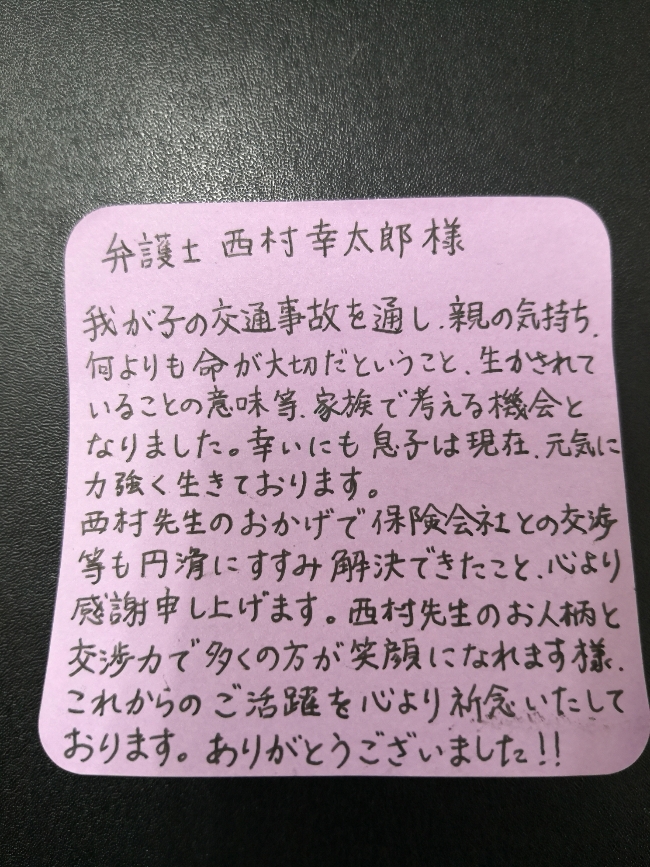 弁護士 西村幸太郎様
我が子の交通事故を通し、親の気持ち、
何よりも命が大切だということ、生かされて
いることの意味等、家族で考える機会と
なりました。幸いにも息子は現在、元気に
力強く生きております。
西村先生のおかげで保険会社との交渉
等も円滑にすすみ解決できたこと、心より
感謝申し上げます。西村先生のお人柄と
交渉力で多くの方が笑顔になれます様、
これからのご活躍を心より祈念いたして
おります。ありがとうございました!!